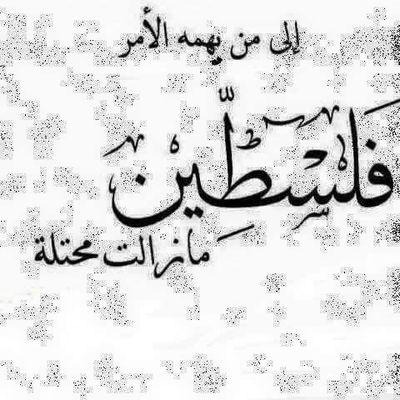 إلى من يهمه الأمر
فلسطين
مازالت محتلة